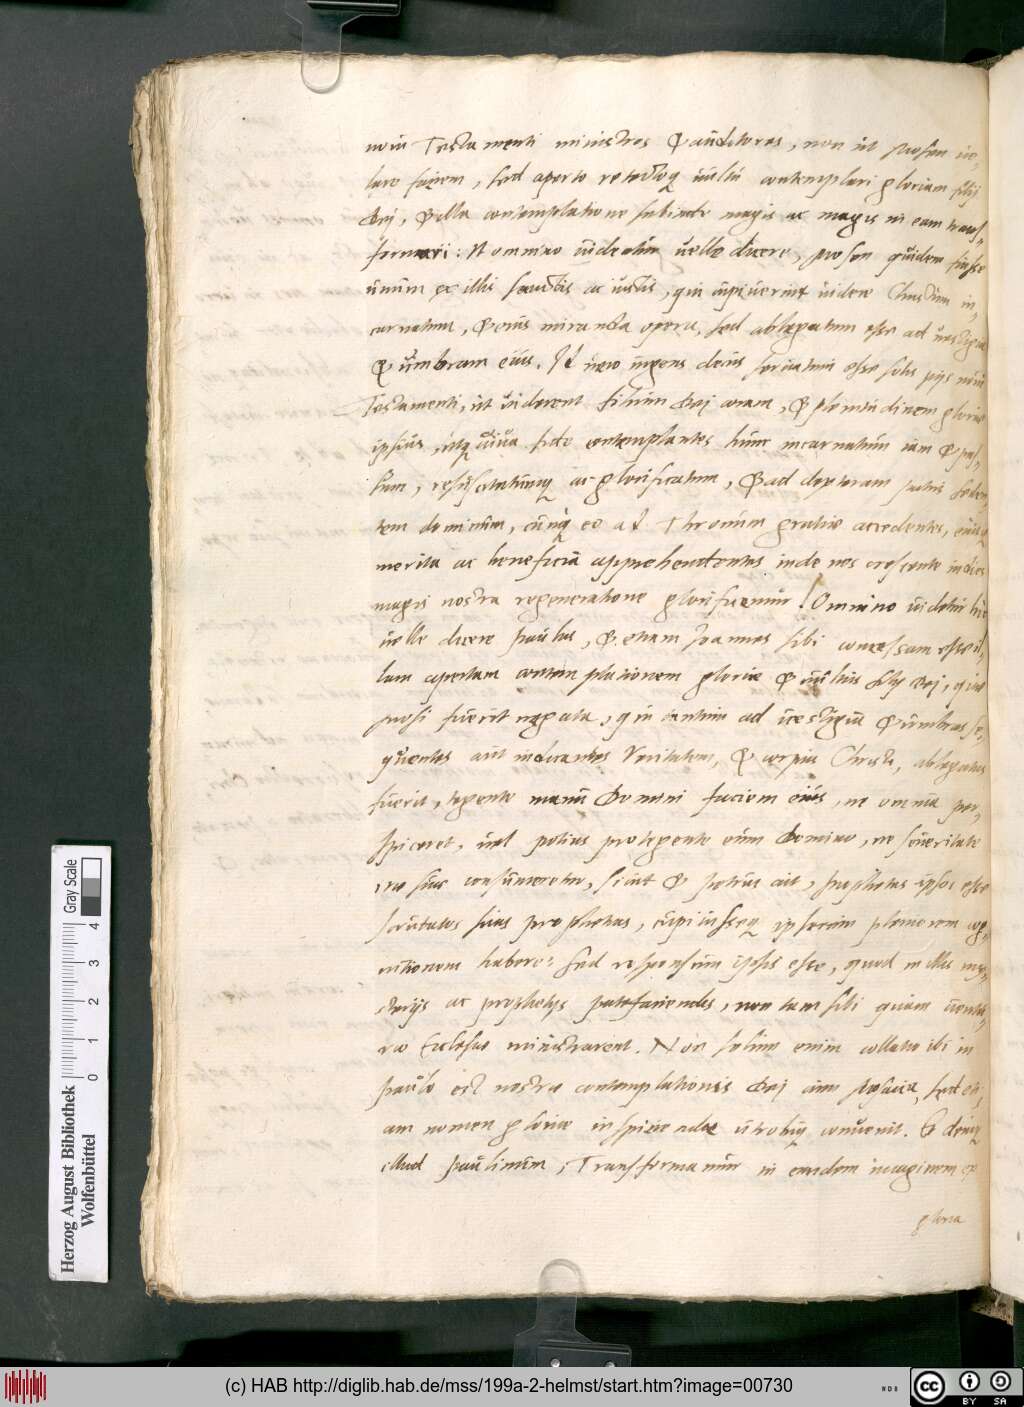 novi Testamenti ministros & auditores, non ut Mosen ve-
lare faciem, sed aperto retectoq vultu contemplari gloriam filij
Dej, & illa contemplatione subinde magis ac magis in eam trans-
formari: Ut omnino videatur velle dicere, Mosen quidem fuisse
unum ex illis sanctis ac iustis, qui cupiverint videre Christum in-
carnatum, & eius miranda opera, sed ablegatum esse ad vestigia
& umbram eius. Id vero ingens decus servatum esse solis pijs novi
Testamenti, ut viderent filium Dej coram, & plenitudinem gloriae
ipsius, utq viva fide contemplantes hunc incarnatum iam & pas-
sum, resuscitatumq ac glorificatum, & ad dexteram patris seden-
tem dominum, cunq eo ad Thronum gratiae accedentes, eiusq
merita ac beneficia apprehendentes inde nos crescente indies
magis nostra regeneratione glorificemur! Omnino videtur hic
velle dicere Paulus, & etiam Joannes sibi concessam esse il-
lam apertam contemplationem gloriae & vultus filij Dej, quae
Mosi fuerit negata, qui tantum ad vestigia & umbras se-
quentes aut indicantes Veritatem, & corpus Christi, ablegatus
fuerit, tegente manu Domini faciem eius, ne omnia per-
spiceret, vel potius protegente eum Domino, ne severitate
irae suae consumeretur, sicut & Petrus ait, prophetas ipsos esse
scrutatos suas prophetias, cupiusseq ipsarum pleniorem cog-
nitionem habere: sed responsum ipsis esse, quod in illis mi-
sterijs ac prophetijs patefaciendis, non tam sibi quam ventu-
rae Ecclesiae ministrarent. Non solum enim collatio ibi in
Paulo est nostrae contemplationis Dej cum Mosaica, sed eti-
am nomen gloriae inspiciendae utrobiq convenit. Et deniq
illud Paulinum, Transformamur in eandem imaginem ex
gloria
Herzog August Bibliothek
Wolfenbüttel
0 1 2 3 4
Gray Scale
(c) HAB http://diglib.hab.de/mss/199a-2-helmst/start.htm?image=00730
cc BY SA